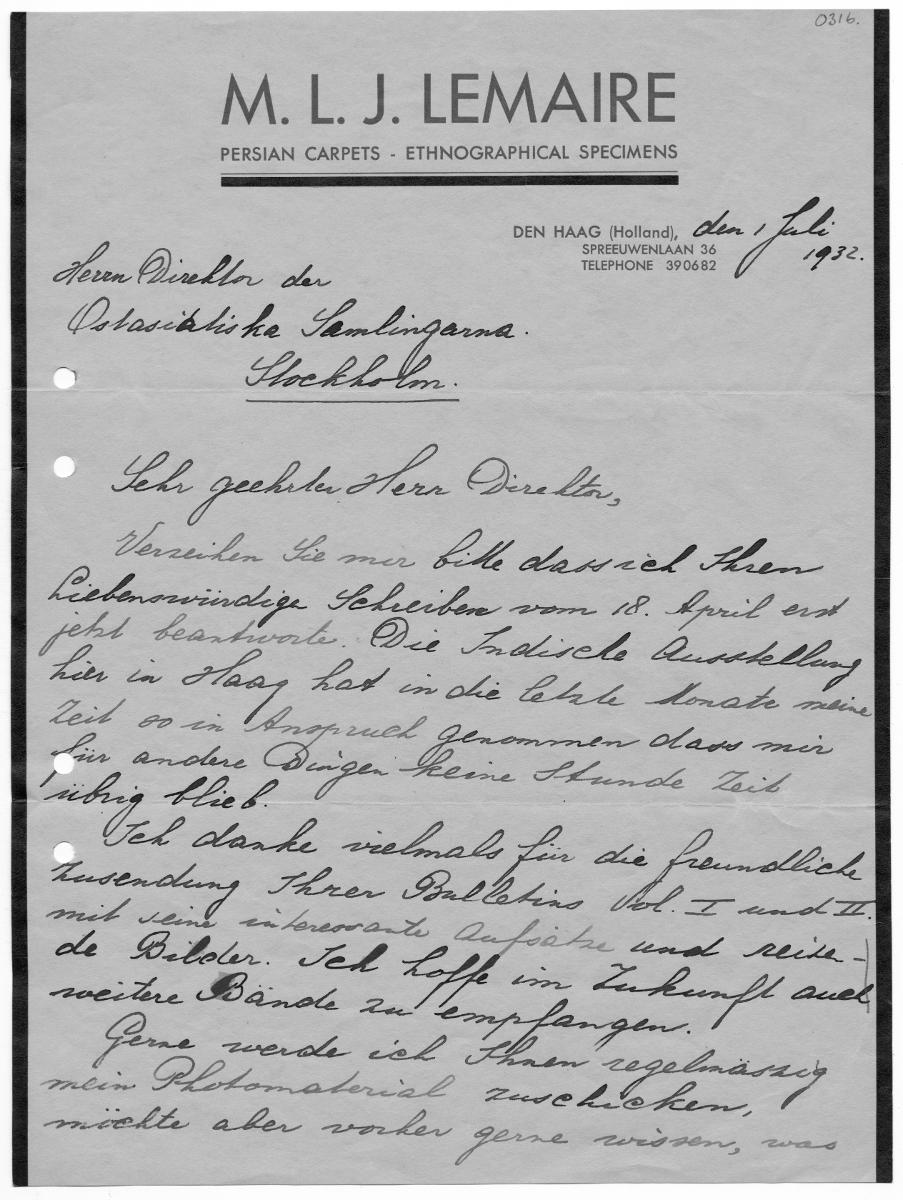 0316.
M. L. J. LEMAIRE
PERSIAN CARPETS - ETHNOGRAPHICAL SPECIMENS
DEN HAAG (Holland), den 1 Juli
SPREEUWENLAAN 36 1932.
TELEPHONE 390682
Herrn Direktor der
Ostasiatiska Samlingarna.
Stockholm.
Sehr geehrter Herr Direktor,
Verzeihen Sie mir bitte dass ich Ihren
Liebenswürdige Schreiben vom 18. April erst
jetzt beantworte. Die Indische Ausstellung
hier in Haag hat in die letzte Monate meine
Zeit so in Anspruch genommen dass mir
für andere Dingen keine Stunde Zeit
übrig blieb.
Ich danke vielmals für die freundliche
Zusendung Ihrer Bulletins Vol. I und II.
mit seine interessante Aufsätze und reizen-
de Bilder. Ich hoffe im Zukunft auch
weitere Bände zu empfangen.
Gerne werde ich Ihnen regelmässig
mein Photomaterial zuschicken,
möchte aber vorher gerne wissen, was